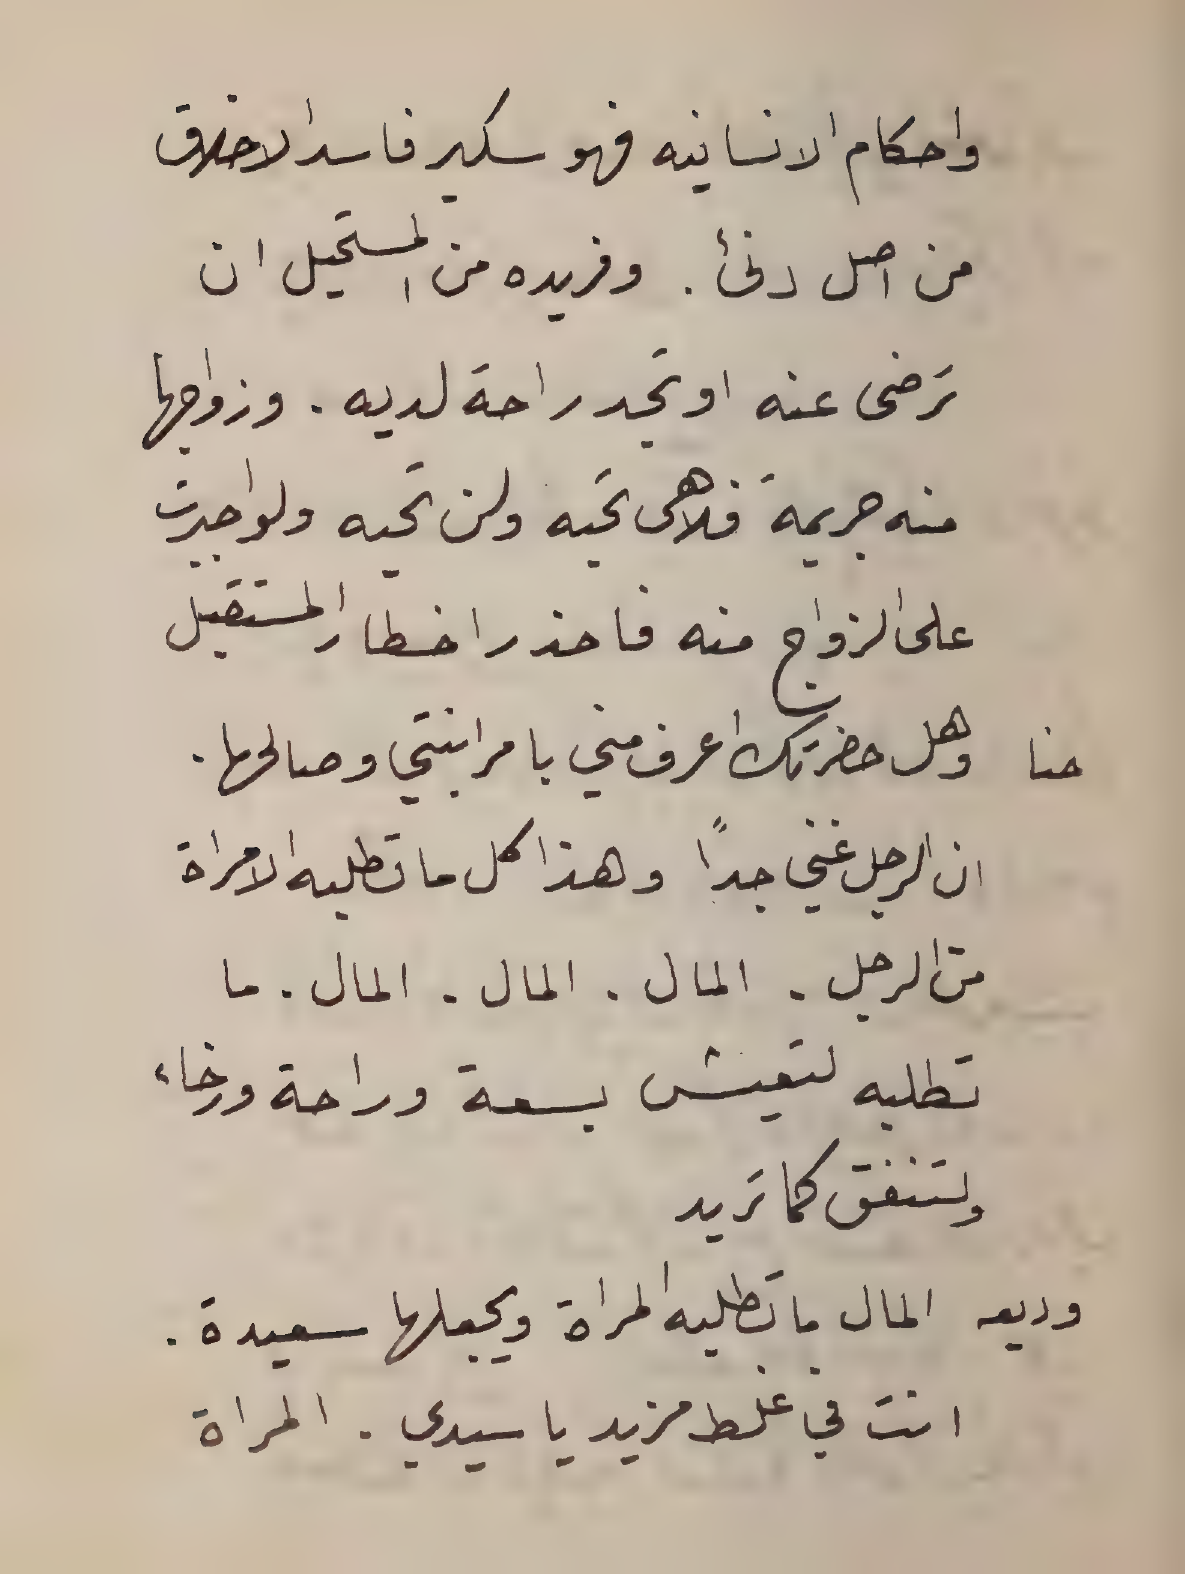 واحكام الانسانيه فهو سكير فاسد الاخلاق
من اصل دنئ . وفريده من المستحيل ان
ترضى عنه او تجد راحة لديه . وزواجها
منه جريمة فلاهي تحبه ولن تحبه ولو اجبرت
على الزواج منه فاحذر اخطار المستقبل
حنا وهل حضرتك اعرف مني بامر ابنتي وصالحها .
ان الرجل غني جداً وهذا كل ما تطلبه الامراة
من الرجل . المال . المال . المال . ما
تطلبه لتعيش بسعة وراحة ورخاء
ولتنفق كما تريد
وديعه المال ما تطلبه المراة ويجعلها سعيدة .
انت في غلط مزيد يا سيدي . المراة